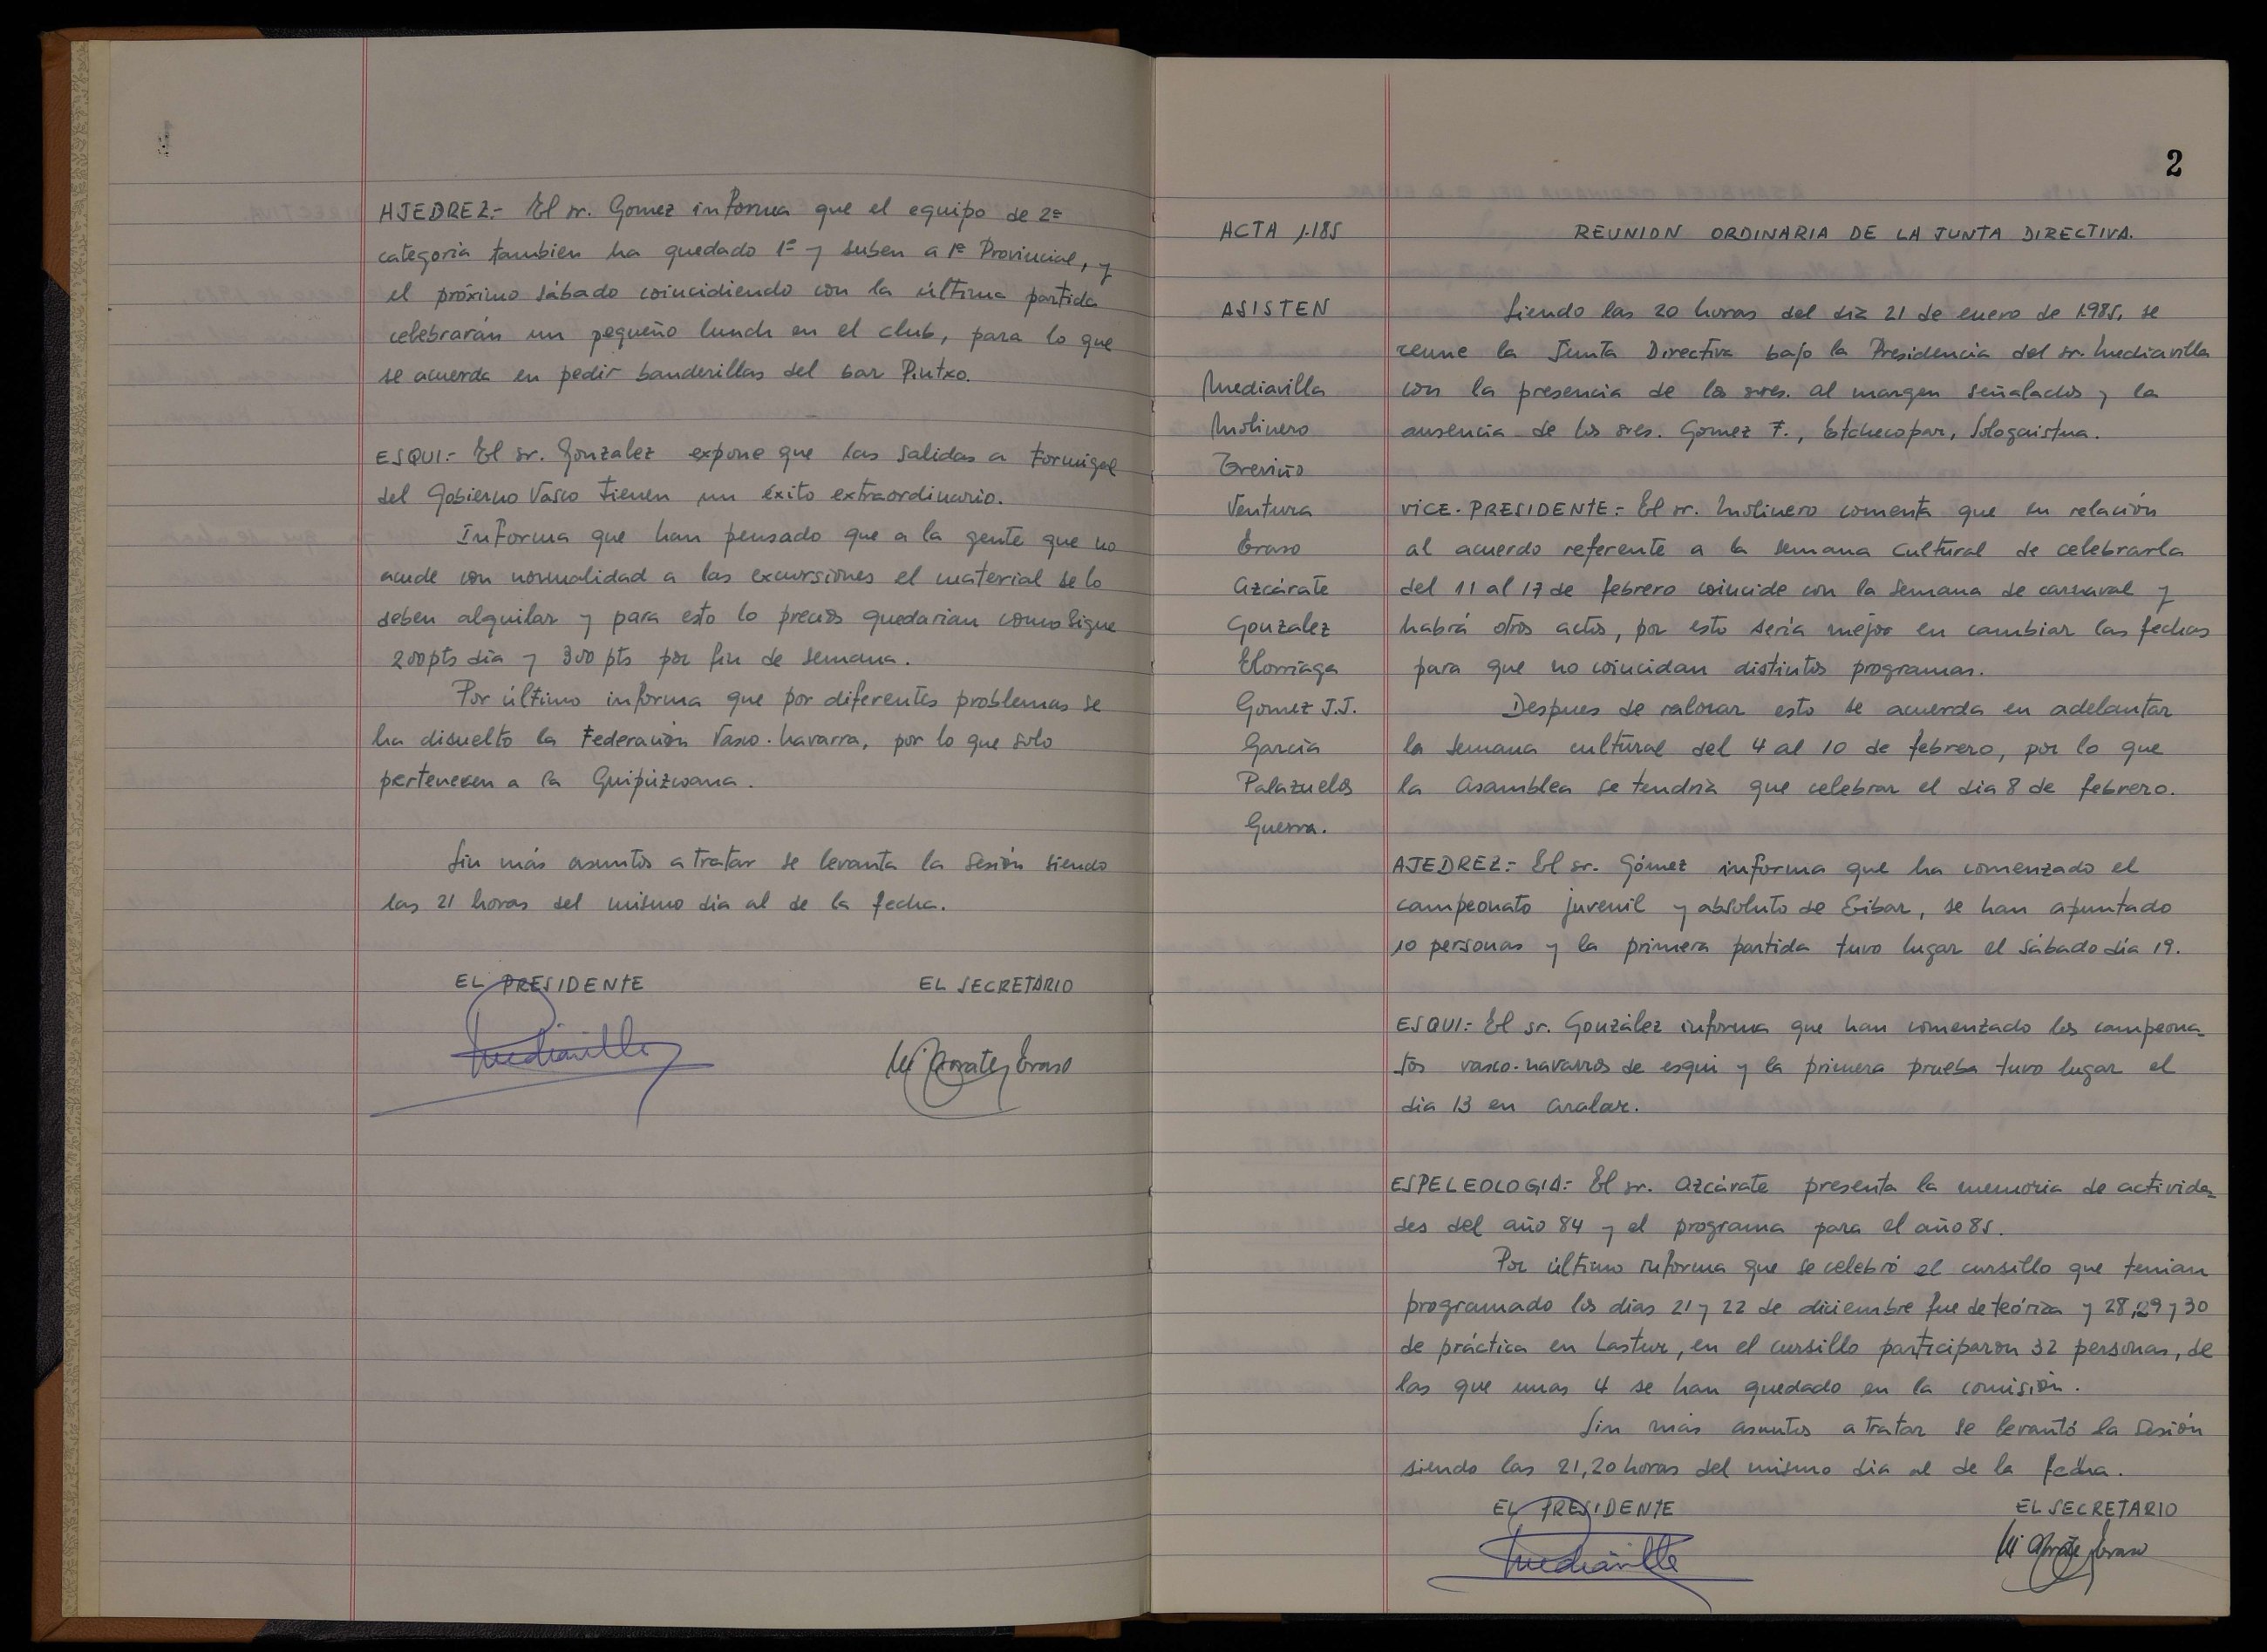 AJEDREZ.- El sr. Gomez informa que el equipo de 2ª
categoria tambien ha quedado 1º y suben a 1ª Provincial, y
el próximo sábado coincidiendo con la última partida
celebrarán un pequeño lunch en el club, para lo que
se acuerda en pedir banderillas del bar Pintxo.
ESQUI.- El sr. Gonzalez expone que las salidas a Formigal
del Gobierno Vasco tienen un éxito extraordinario.
Informa que han pensado que a la gente que no
acude con normalidad a las excursiones el material se lo
deben alquilar y para esto lo precios quedarian como sigue
200 pts dia y 300 pts por fin de semana.
Por último informa que por diferentes problemas se
ha disuelto la Federación Vasco-Navarra, por lo que solo
pertenecen a la Guipúzcoana.
Sin más asuntos a tratar se levanta la sesión siendo
las 21 horas del mismo dia al de la fecha.
EL PRESIDENTE EL SECRETARIO
Mediavilla
Eraso
2
ACTA 1.185 REUNION ORDINARIA DE LA JUNTA DIRECTIVA.
ASISTEN
Mediavilla
Molinero
Treviño
Ventura
Eraso
Azcárate
Gonzalez
Elorriaga
Gomez J.J.
García
Palazuelos
Guerra.
Siendo las 20 horas del dia 21 de enero de 1.985, se
reune la Junta Directiva bajo la Presidencia del sr. Mediavilla
con la presencia de los sres. al margen señalados y la
ausencia de los sres. Gomez F., Etchecopar, Sologaistua.
VICE-PRESIDENTE.- El sr. Molinero comenta que en relación
al acuerdo referente a la semana cultural de celebrarla
del 11 al 17 de febrero coincide con la semana de carnaval y
habrá otros actos, por esto sería mejor en cambiar las fechas
para que no coincidan distintos programas.
Despues de valorar esto se acuerda en adelantar
la semana cultural del 4 al 10 de febrero, por lo que
la Asamblea se tendría que celebrar el dia 8 de febrero.
AJEDREZ.- El sr. Gómez informa que ha comenzado el
campeonato juvenil y absoluto de Eibar, se han apuntado
10 personas y la primera partida tuvo lugar el sábado día 19.
ESQUI.- El sr. González informa que han comenzado los campeona-
tos vasco-navarros de esqui y la primera prueba tuvo lugar el
dia 13 en Aralar.
ESPELEOLOGIA.- El sr. Azcárate presenta la memoria de activida-
des del año 84 y el programa para el año 85.
Por último informa que se celebró el cursillo que tenian
programado los dias 21 y 22 de diciembre fue de teórica y 28, 29 y 30
de práctica en Lastur, en el cursillo participaron 32 personas, de
las que unas 4 se han quedado en la comisión.
Sin más asuntos a tratar se levantó la sesión
siendo las 21,20 horas del mismo dia al de la fecha.
EL PRESIDENTE EL SECRETARIO
Mediavilla
Eraso